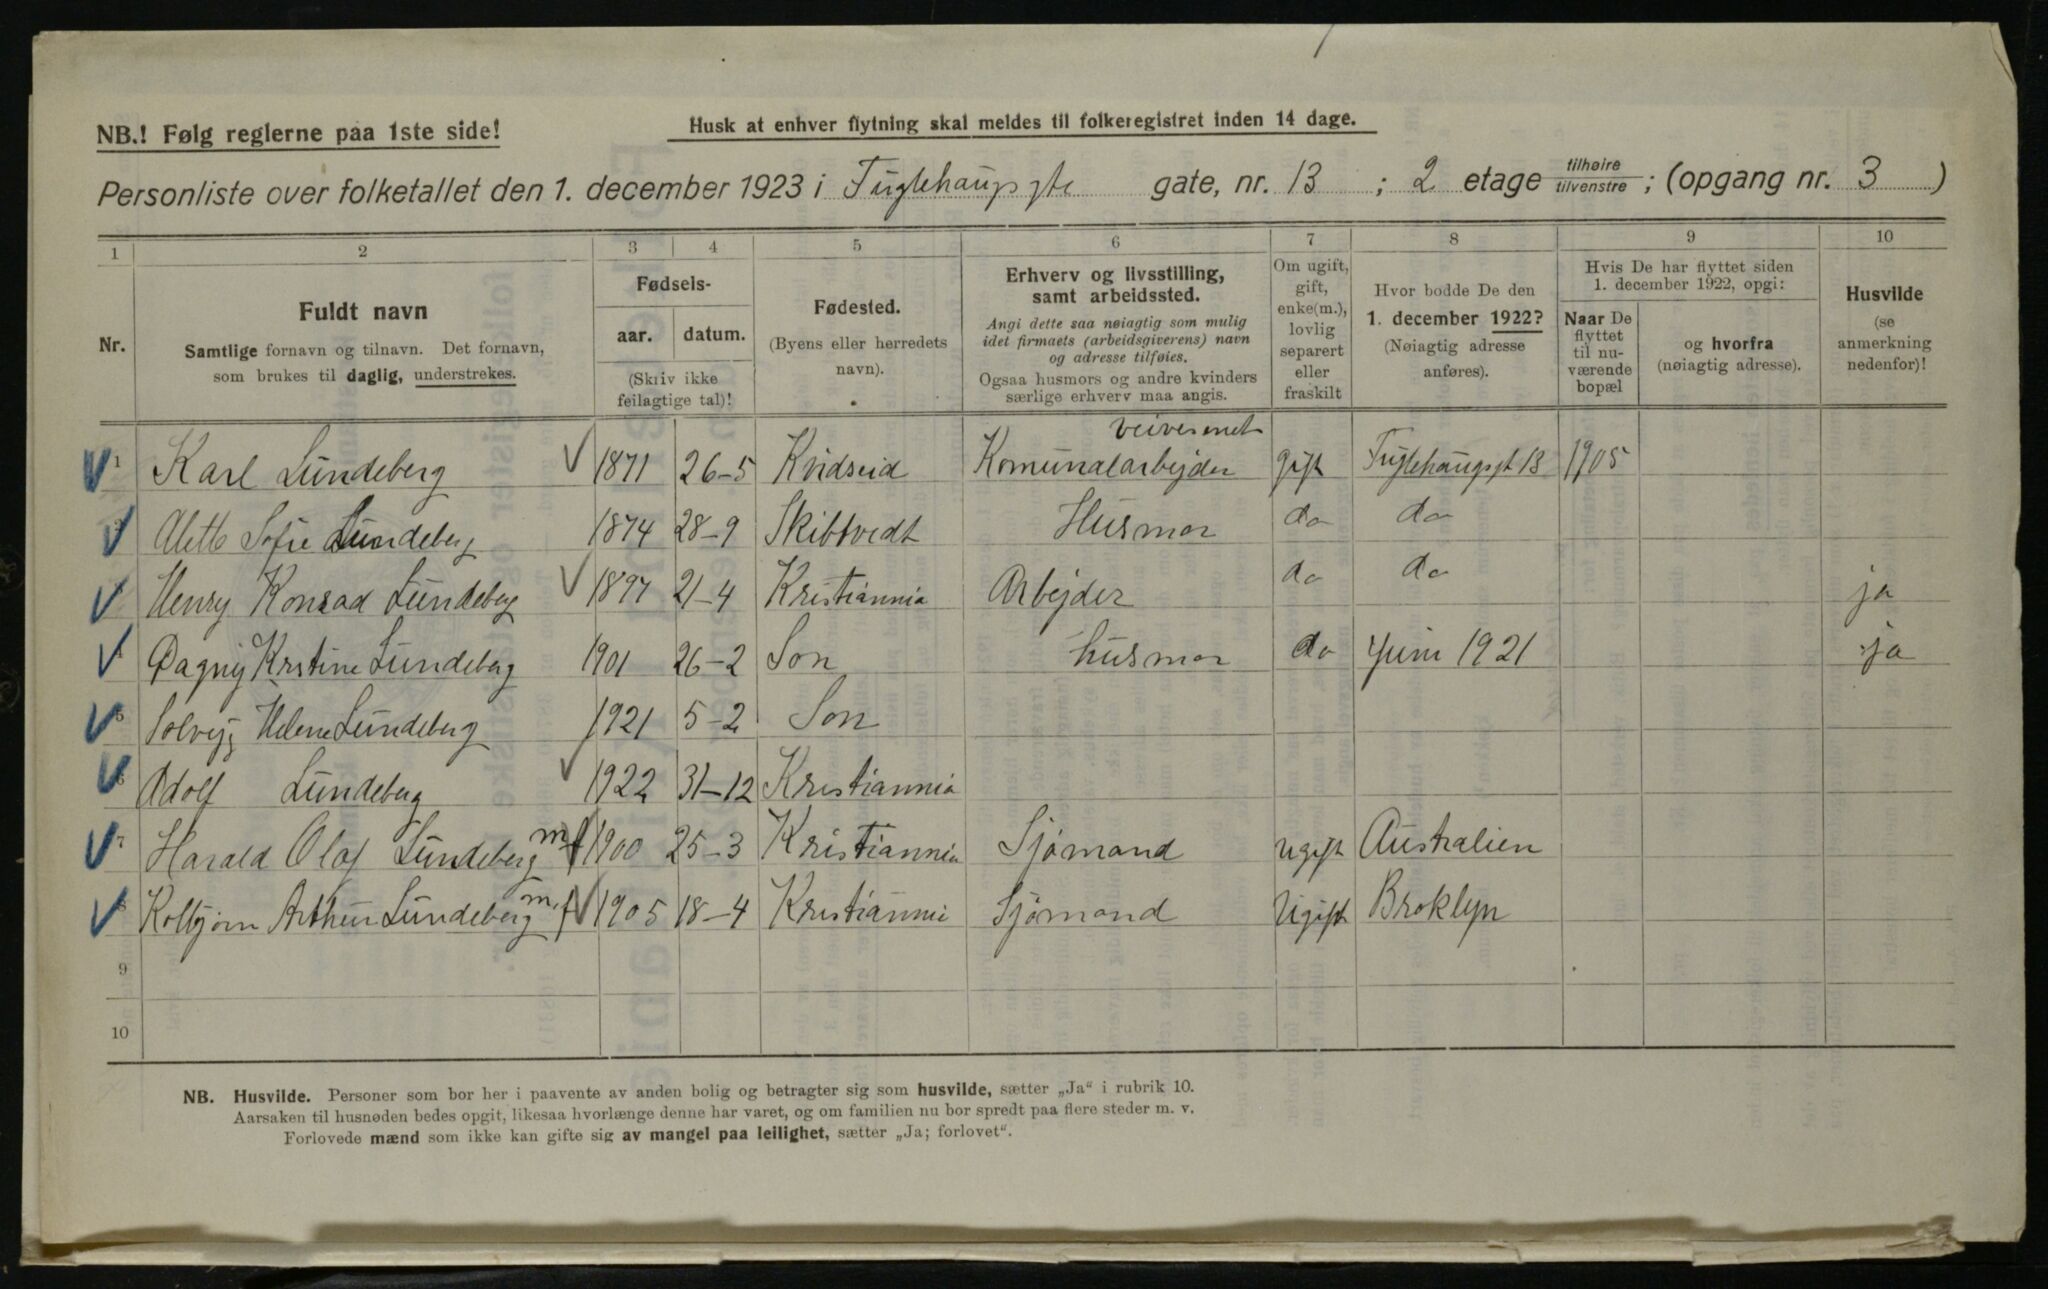 NB.! Følg reglerne paa 1ste side!
Husk at enhver flytning skal meldes til folkeregistret inden 14 dage.
Personliste over folketallet den 1. december 1923 i Fuglehaugsgte gate, nr. 13 ; 2 etage tilhøire tilvenstre ; (opgang nr. 3 )
1 2 3 4 5 6 7 8 9 10
Nr.
Fuldt navn
Samtlige fornavn og tilnavn. Det fornavn,
som brukes til daglig, understrekes.
Fødsels-
aar. datum.
(Skriv ikke
feilagtige tal)!
Fødested.
(Byens eller herredets
navn).
Erhverv og livsstilling,
samt arbeidssted.
Angi dette saa nøiagtig som mulig
idet firmaets (arbeidsgiverens) navn
og adresse tilføies.
Ogsaa husmors og andre kvinders
særlige erhverv maa angis.
Om ugift,
gift,
enke(m.),
lovlig
separert
eller
fraskilt
Hvor bodde De den
1. december 1922?
(Nøiagtig adresse
anføres).
Hvis De har flyttet siden
1. december 1922, opgi:
Naar De
flyttet
til nu-
værende
bopæl
og hvorfra
(nøiagtig adresse).
Husvilde
(se
anmerkning
nedenfor)!
veivesenet
1 Karl Lundeberg 1871 26-5 Kvidseid Komunalarbejder gift Fuglehaugsgt 13 1905
2 Alette Sofie Lundeberg 1874 28-9 Skibtvedt Husmor do do
Henry Konrad Lundeberg 1897 21-4 Kristiannia Arbejder do do ja
4 Dagny Kristine Lundeberg 1901 26-2 Son husmor do Juni 1921 ja
5 Solveig Helene Lundeberg 1921 5-2 Son
6 Adolf Lundeberg 1922 31-12 Kristiannia
7 Harald Olaf Lundeberg m.f 1900 25-3 Kristiannia Sjømand ugift Australien
8 Kolbjørn Arthur Lundeberg m.f 1905 18-4 Kristiannia Sjømand Ugift Broklyn
9
10
NB. Husvilde. Personer som bor her i paavente av anden bolig og betragter sig som husvilde, sætter „Ja“ i rubrik 10.
Aarsaken til husnøden bedes opgit, likesaa hvorlænge denne har varet, og om familien nu bor spredt paa flere steder m. v.
Forlovede mænd som ikke kan gifte sig av mangel paa leilighet, sætter „Ja; forlovet“.